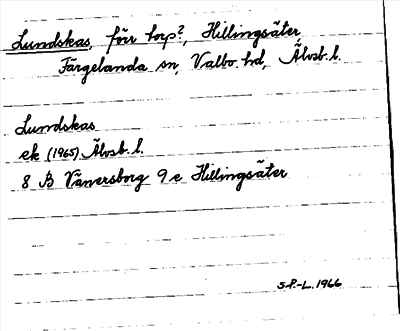 Lundskas, förr torp?, Hillingsäter,
Färgelanda sn, Valbo hd, Älvsb. l.
Lundskas
ek (1965) Älvsb. l.
8 B Vänersborg 9 e Hillingsäter
S.P.-L. 1966